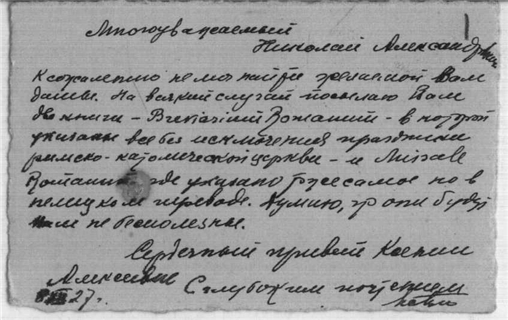 Многоуважаемый
Николай Александрович
К сожалению не мог найти желаемой Вам
дамы. На всякий случай посылаю Вам
две книги – Breviarium Romanum – в которой
указаны все без исключения праздники
римско-католической церкви – и Missale
Romanum где указано тоже самое но в
немецком переводе. Думаю, что они будут
Вам не бесполезны.
Сердечный привет Ксении
Алексеевне С глубоким почтением
27 г.